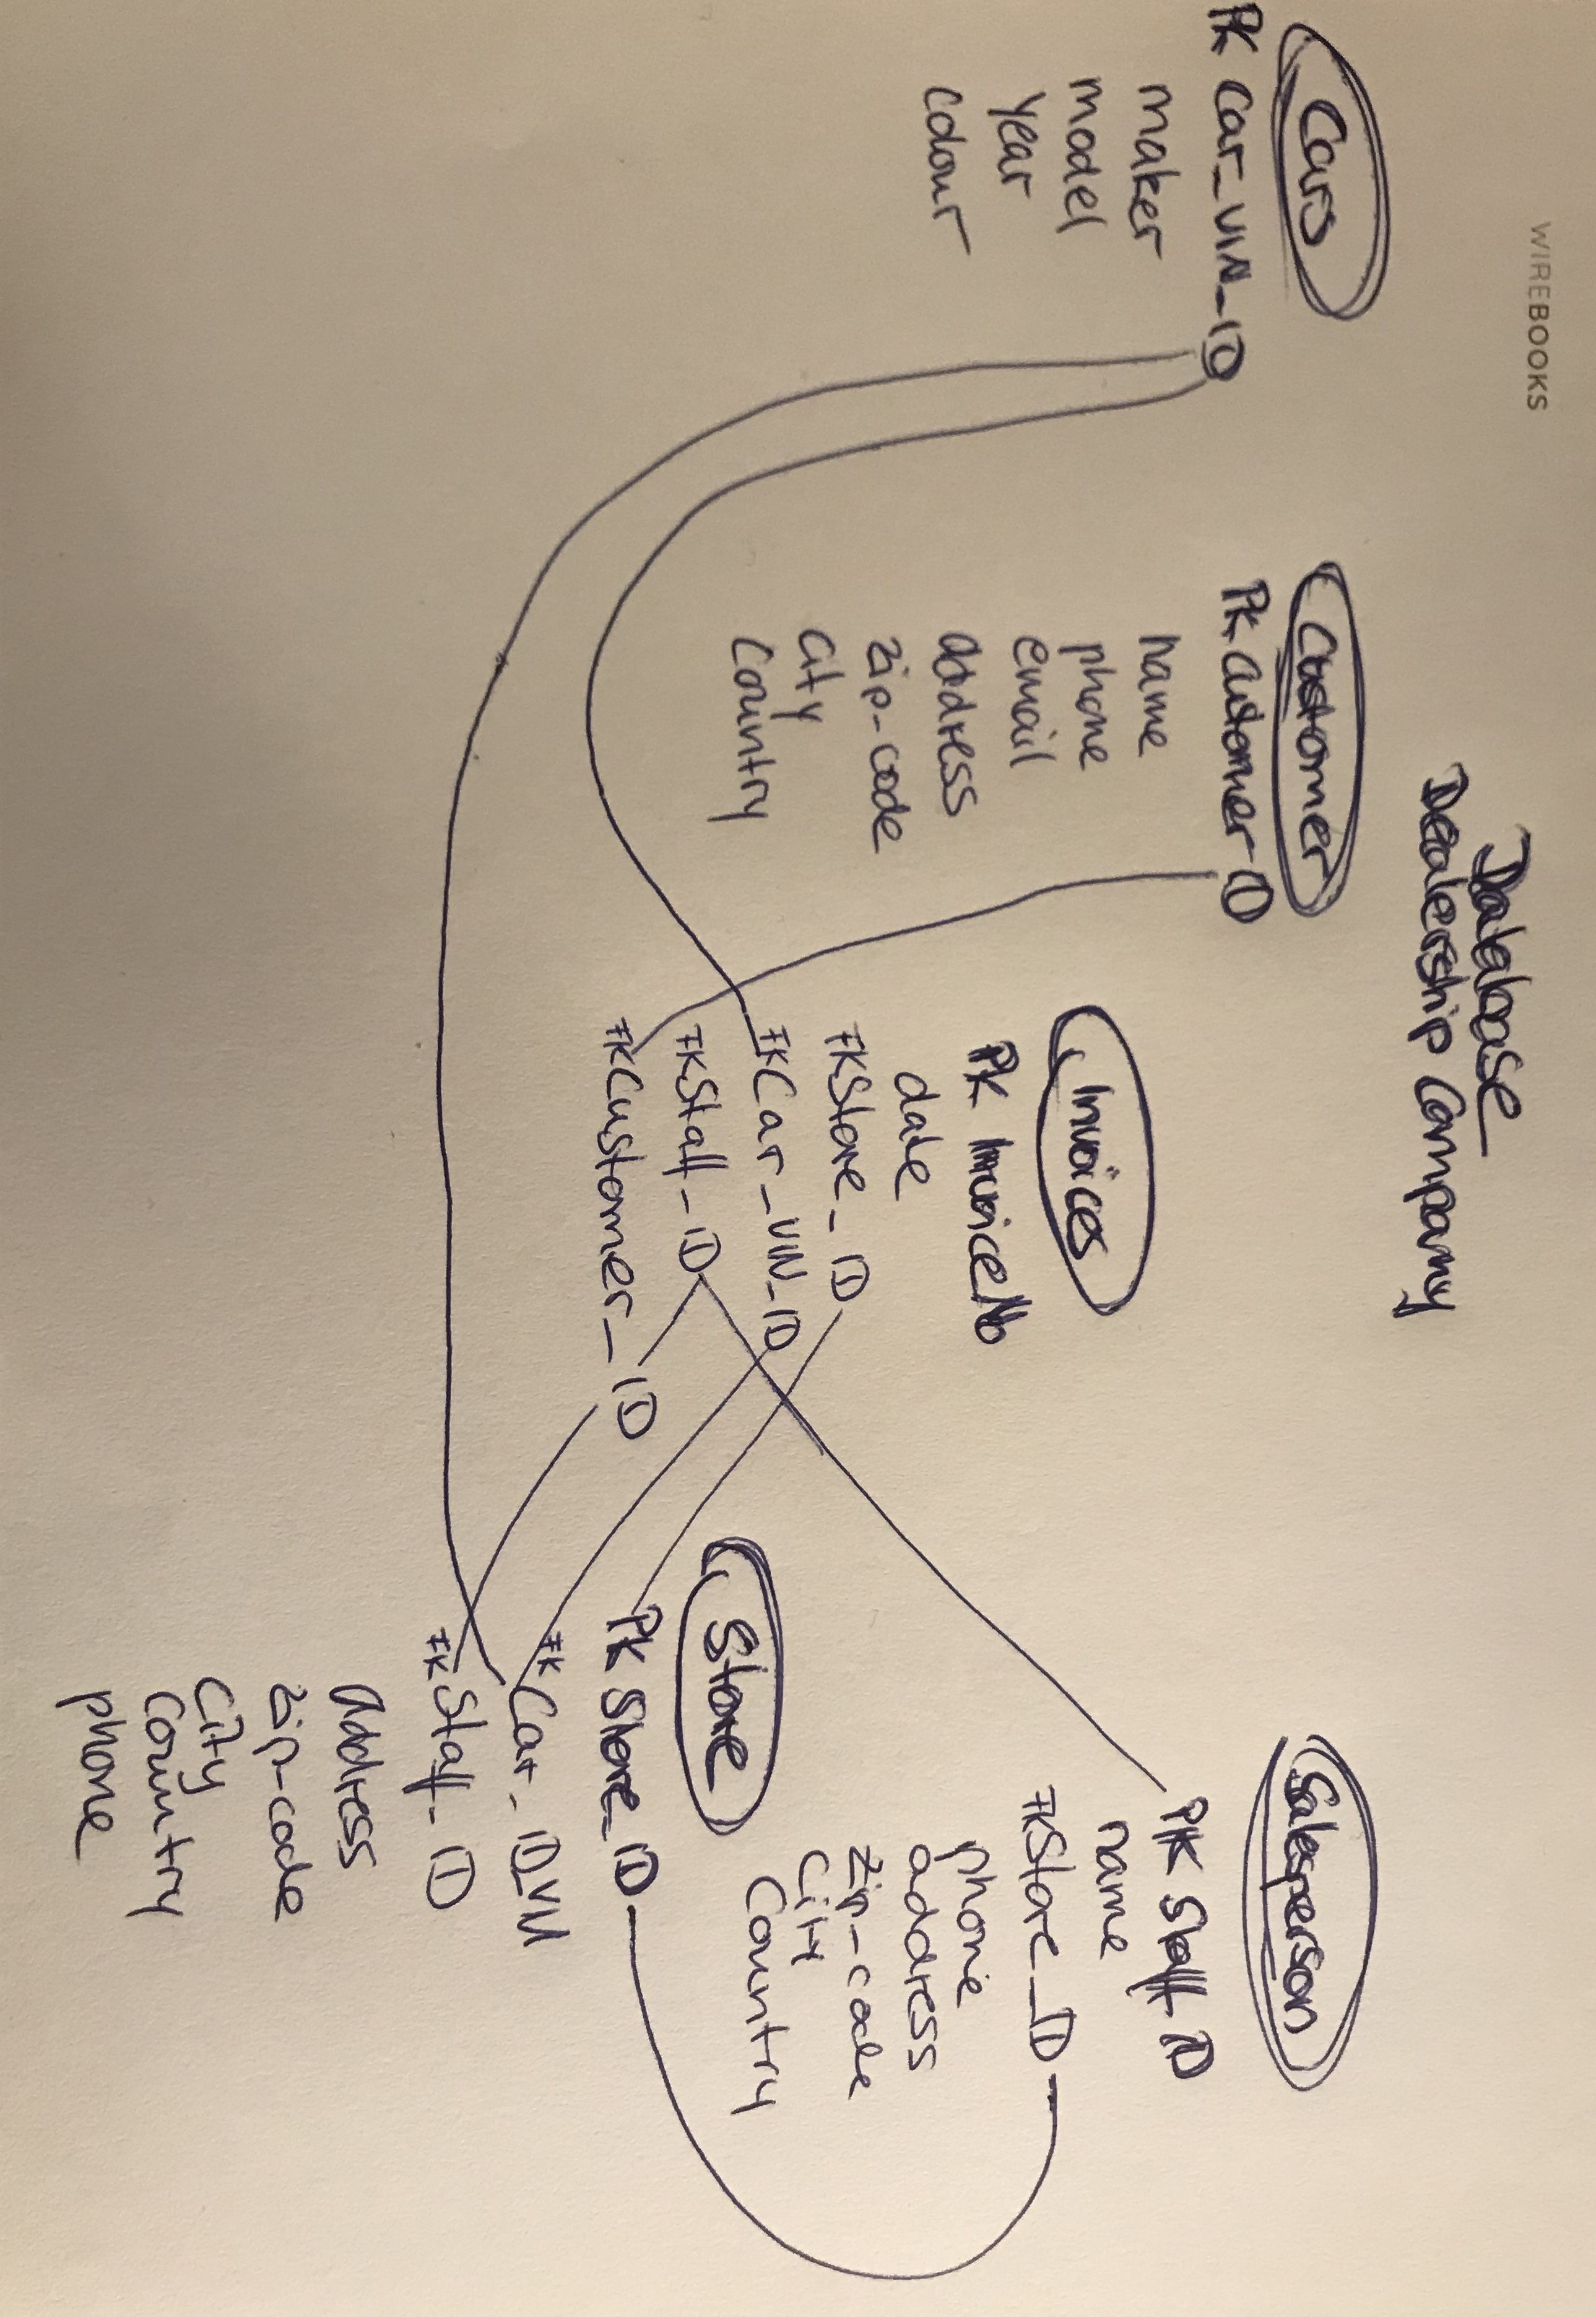 WIREBOOKS
Database
Dealership Company
Cars
PK Car_VIN_ID
maker
model
year
colour
Customer
PK Customer ID
name
phone
email
address
zip-code
City
Country
Invoices
PK InvoiceNo
date
FK Store_ID
FK Car_VIN_ID
FK Staff_ID
FK Customer_ID
Salesperson
PK Staff_ID
name
FK Store_ID
phone
address
zip-code
City
Country
Store
PK Store_ID
FK Car_ID_VIN
FK Staff_ID
Address
zip-code
City
Country
phone